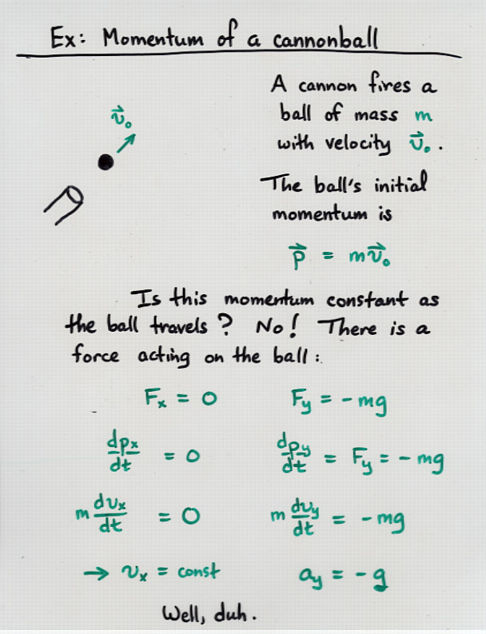 Ex: Momentum of a cannonball
A cannon fires a
ball of mass m
with velocity v⃗₀.
v⃗₀
The ball's initial
momentum is
p⃗ = mv⃗₀
Is this momentum constant as
the ball travels? No! There is a
force acting on the ball:
Fₓ = 0 F_y = -mg
dpₓ/dt = 0 dp_y/dt = F_y = -mg
m dvₓ/dt = 0 m dv_y/dt = -mg
→ vₓ = const a_y = -g
Well, duh.